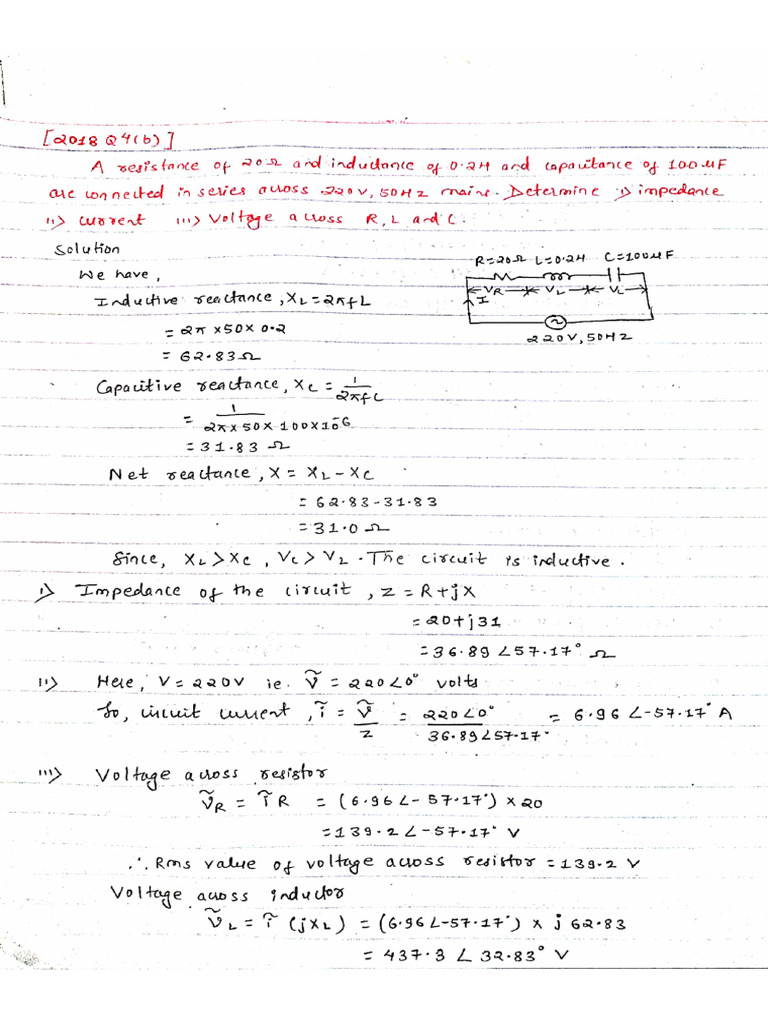 [2018 Q4(b)]
A resistance of 20Ω and inductance of 0.2H and capacitance of 100μF
are connected in series across 220V, 50Hz mains. Determine i) impedance
ii) current iii) Voltage across R, L and C.
Solution
We have,
R=20Ω L=0.2H C=100μF
VR VL VC
I
220V, 50HZ
Inductive reactance, XL = 2πfL
= 2π×50×0.2
= 62.83Ω
Capacitive reactance, Xc = 1/2πfC
= 1/2π×50×100×10^-6
= 31.83 Ω
Net reactance, X = XL - Xc
= 62.83-31.83
= 31.0 Ω
Since, XL > Xc, Vc > VL. The circuit is inductive.
i) Impedance of the circuit, Z = R+jX
= 20+j31
= 36.89 ∠57.17° Ω
ii) Here, V = 220V ie. Ṽ = 220∠0° volts
So, circuit current, ĩ = Ṽ/Z = 220∠0°/36.89∠57.17° = 6.96 ∠-57.17° A
iii) Voltage across resistor
ṼR = ĩ R = (6.96 ∠- 57.17°) × 20
= 139.2 ∠-57.17° V
∴ Rms value of voltage across resistor = 139.2 V
Voltage across inductor
ṼL = ĩ (jXL) = (6.96 ∠-57.17°) × j 62.83
= 437.3 ∠ 32.83° V